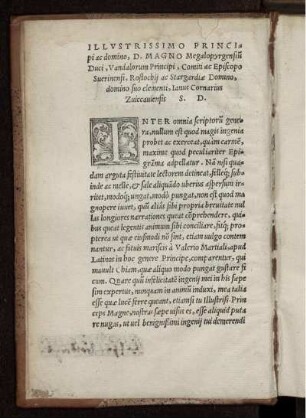 ILLVSTRISSIMO PRINCI⸗
pi ac domino, D. MAGNO Megalopyrgensiū
Duci, Vandalorum Principi, Comiti ac Episcopo
Suerinensi, Rostochij ac Stargardiæ Domino,
domino suo clementi, Ianus Cornarius
Zuiccauiensis S. D.
INTER omnia scriptorū gene
ra, nullum est quod magis ingenia
probet ac exerceat, quàm carmē,
maxime quod peculiariter Epi⸗
grāma adpellatur. Nā nisi quæ⸗
dam arguta festiuitate lectorem detineat, sub⸗
inde ac uelle, & sale aliquādo ubertus aspersum ir⸗
ritet, modoq; ungat, modò pungat, non est quod ma
gnopere iuuet, quū alide sibi propria breuitate nul
las longiores narrationes queat cōprehendere, qui⸗
bus queat legentis animum sibi conciliare, sitq; pro⸗
pterea ut quæ eiusmodi nō sint, etiam uulgo contem
nantur, ac situs marceis à Valerio Martiali, apud
Latinos in hoc genere Principe, comparentur, qui
mauult Chiam, quæ aliquo modo pungat gustare fi
cum. Quare quū infelicitatē ingenij mei in his sæpe
sim expertus, nunquam in animū induxi, mea talia
esse quæ lucē ferre queant, etiansi tu Illustriss. Prin
ceps Magne, nostra sæpe uisus es, esse aliquid puta
re nugas, ut uel benignissimi ingenij tui demerendi